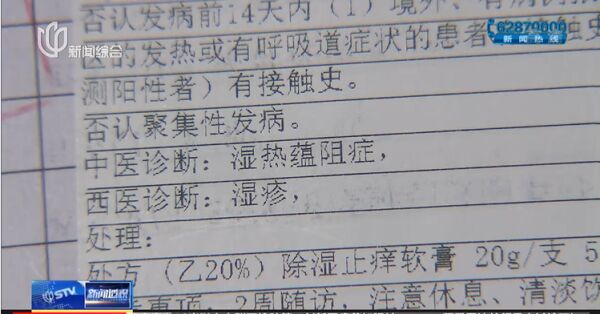 否认发病前14天内（1）境外、有病例报
医的发热或有呼吸道症状的患者
触史
测阳性者）有接触史。
否认聚集性发病。
中医诊断：湿热蕴阻症，
西医诊断：湿疹，
处理：
处方（乙20%）除湿止痒软膏 20g/支 5
2周随访，注意休息、清淡饮
新闻综合
62870000
新闻热线
STV
新闻透视